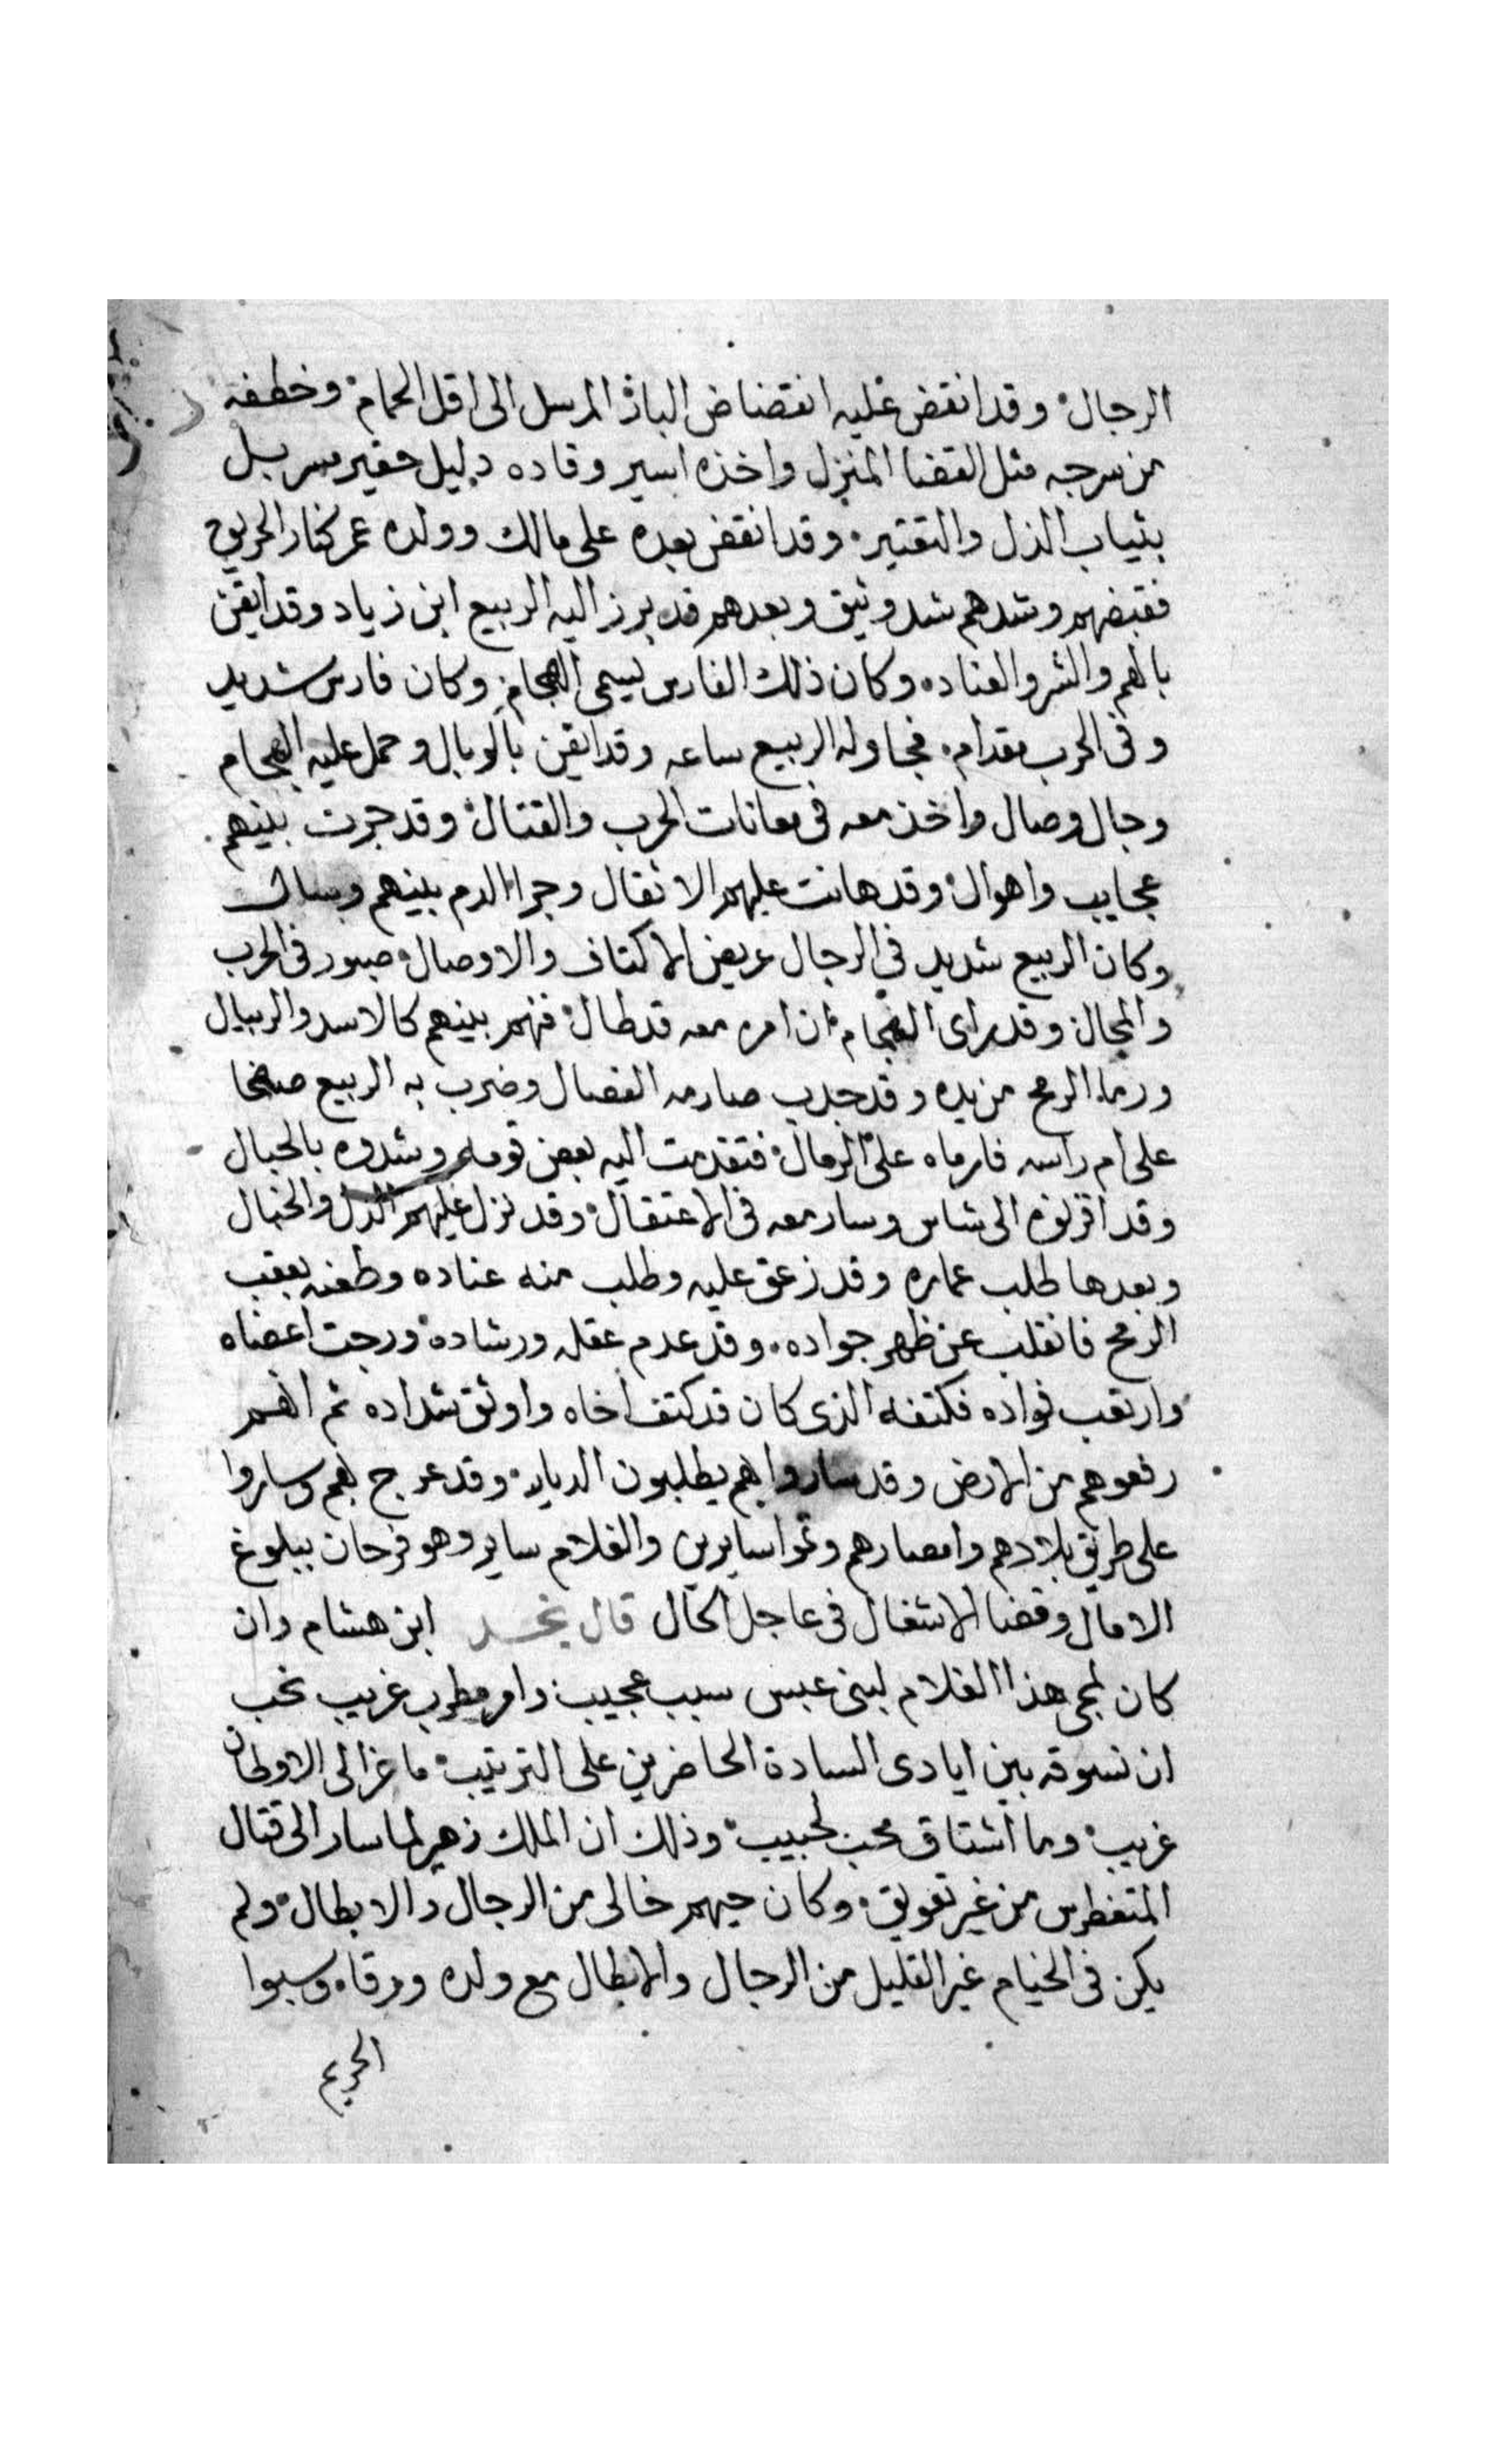 الرجال وقد انقض عليه انقضاض الباز المرسل الى اقل الحمام وخطفه
من سرجه مثل القضا المنزل واخذه اسير وقاده دليل حقير مسربل
بثياب الذل والتقتير وقد انقض بعده على مالك وولده عمر كنار الحريق
فقبضهم وشدهم شد وثيق وبعدهم قد برز اليه الربيع ابن زياد وقد ايقن
بالهم والشر والعناده وكان ذلك الفارس يسمى الهجام وكان فارس شديد
وفى الحرب مقدام فجاوله الربيع ساعه وقد ايقن بالوبال وحمل عليه الهجام
وجال وصال واخذ معه فى معانات الحرب والقتال وقد جرت بينهم
عجايب واهوال وقد هانت عليهم الاثقال وجرا الدم بينهم وسال
وكان الربيع شديد في الرجال عريض الاكتاف والاوصال صبور فى الحرب
والمجال وقد راى الهجام ان امره معه قد طال فهم بينهم كالاسد والريبال
ورما الرمح من يده وقد جدب صارمه الفصال وضرب به الربيع صفحا
على ام راسه فارماه على الرمال فتقدمت اليه بعض قومه وشدوه بالحبال
وقد اقرنوه الى شاس وسار معه فى الاعتقال وقد نزل عليهم الذل والخبال
وبعدها طلب عماره وقد زعق عليه وطلب منه عناده وطعنه بعقب
الرمح فانقلب عن ظهر جواده وقد عدم عقله ورشاده ورجت اعضاه
وارتعب فواده فكتفه الذى كان قد كتف اخاه واوثق شداده ثم انهم
رفعوهم من الارض وقد ساروا بهم يطلبون الديار وقد عرج بهم وساروا
على طريق بلادهم وامصارهم وتموا سايرين والغلام ساير وهو فرحان ببلوغ
الامال وقضا الاشغال فى عاجل الحال قال نجد ابن هشام وان
كان لمجى هذا الغلام لبنى عبس سبب عجيب وامر مطرب غريب نحب
ان نسوقه بين ايادى السادة الحاضرين على الترتيب ما غزا الى الاوطان
غريب وما اشتاق محب لحبيب وذلك ان الملك زهير لما سار الى قتال
المتغطرس من غير تعويق وكان حيهم خالى من الرجال والابطال ولم
يكن فى الخيام غير القليل من الرجال والابطال مع ولده ورقا وسبوا
الحريم